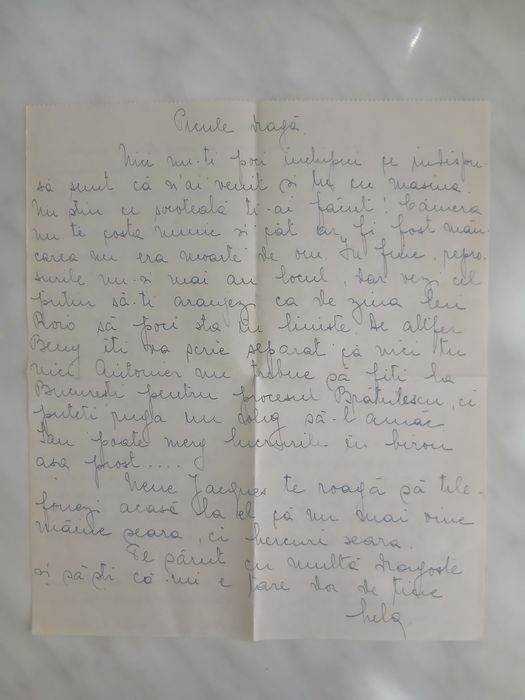 Picule dragă
Nici nu-ți poți închipui ce indispu
să sunt că n'ai venit și tu cu mașina
Nu știu ce socoteală ți-ai făcut! Camera
nu te costa nimic și cât ar fi fost mân-
carea nu era moarte de om. În fine, repro-
șurile nu-și mai au locul, dar vezi cel
puțin să-ți aranjezi ca de ziua lui
Roro să poți sta în liniște. De altfel
Beny îți va scrie separat că nici tu
nici nu trebue să fiți la
București pentru procesul Brătulescu, ci
puteți ruga un coleg să-l amâe
Sau poate merg lucrurile în birou
așa prost....
Nene Jacques te roagă să tele-
fonezi acasă la el că nu mai vine
mâine seara, ci Mercuri seara.
Te sărut cu multă dragoste
și să știi că mi e tare dor de tine